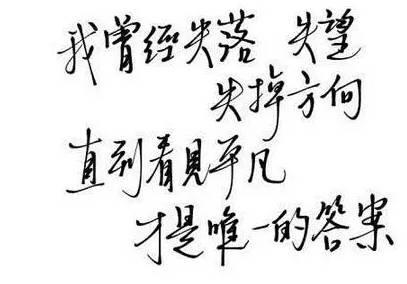 我曾經失落 失望
失掉方向
直到看見平凡
才是唯一的答案